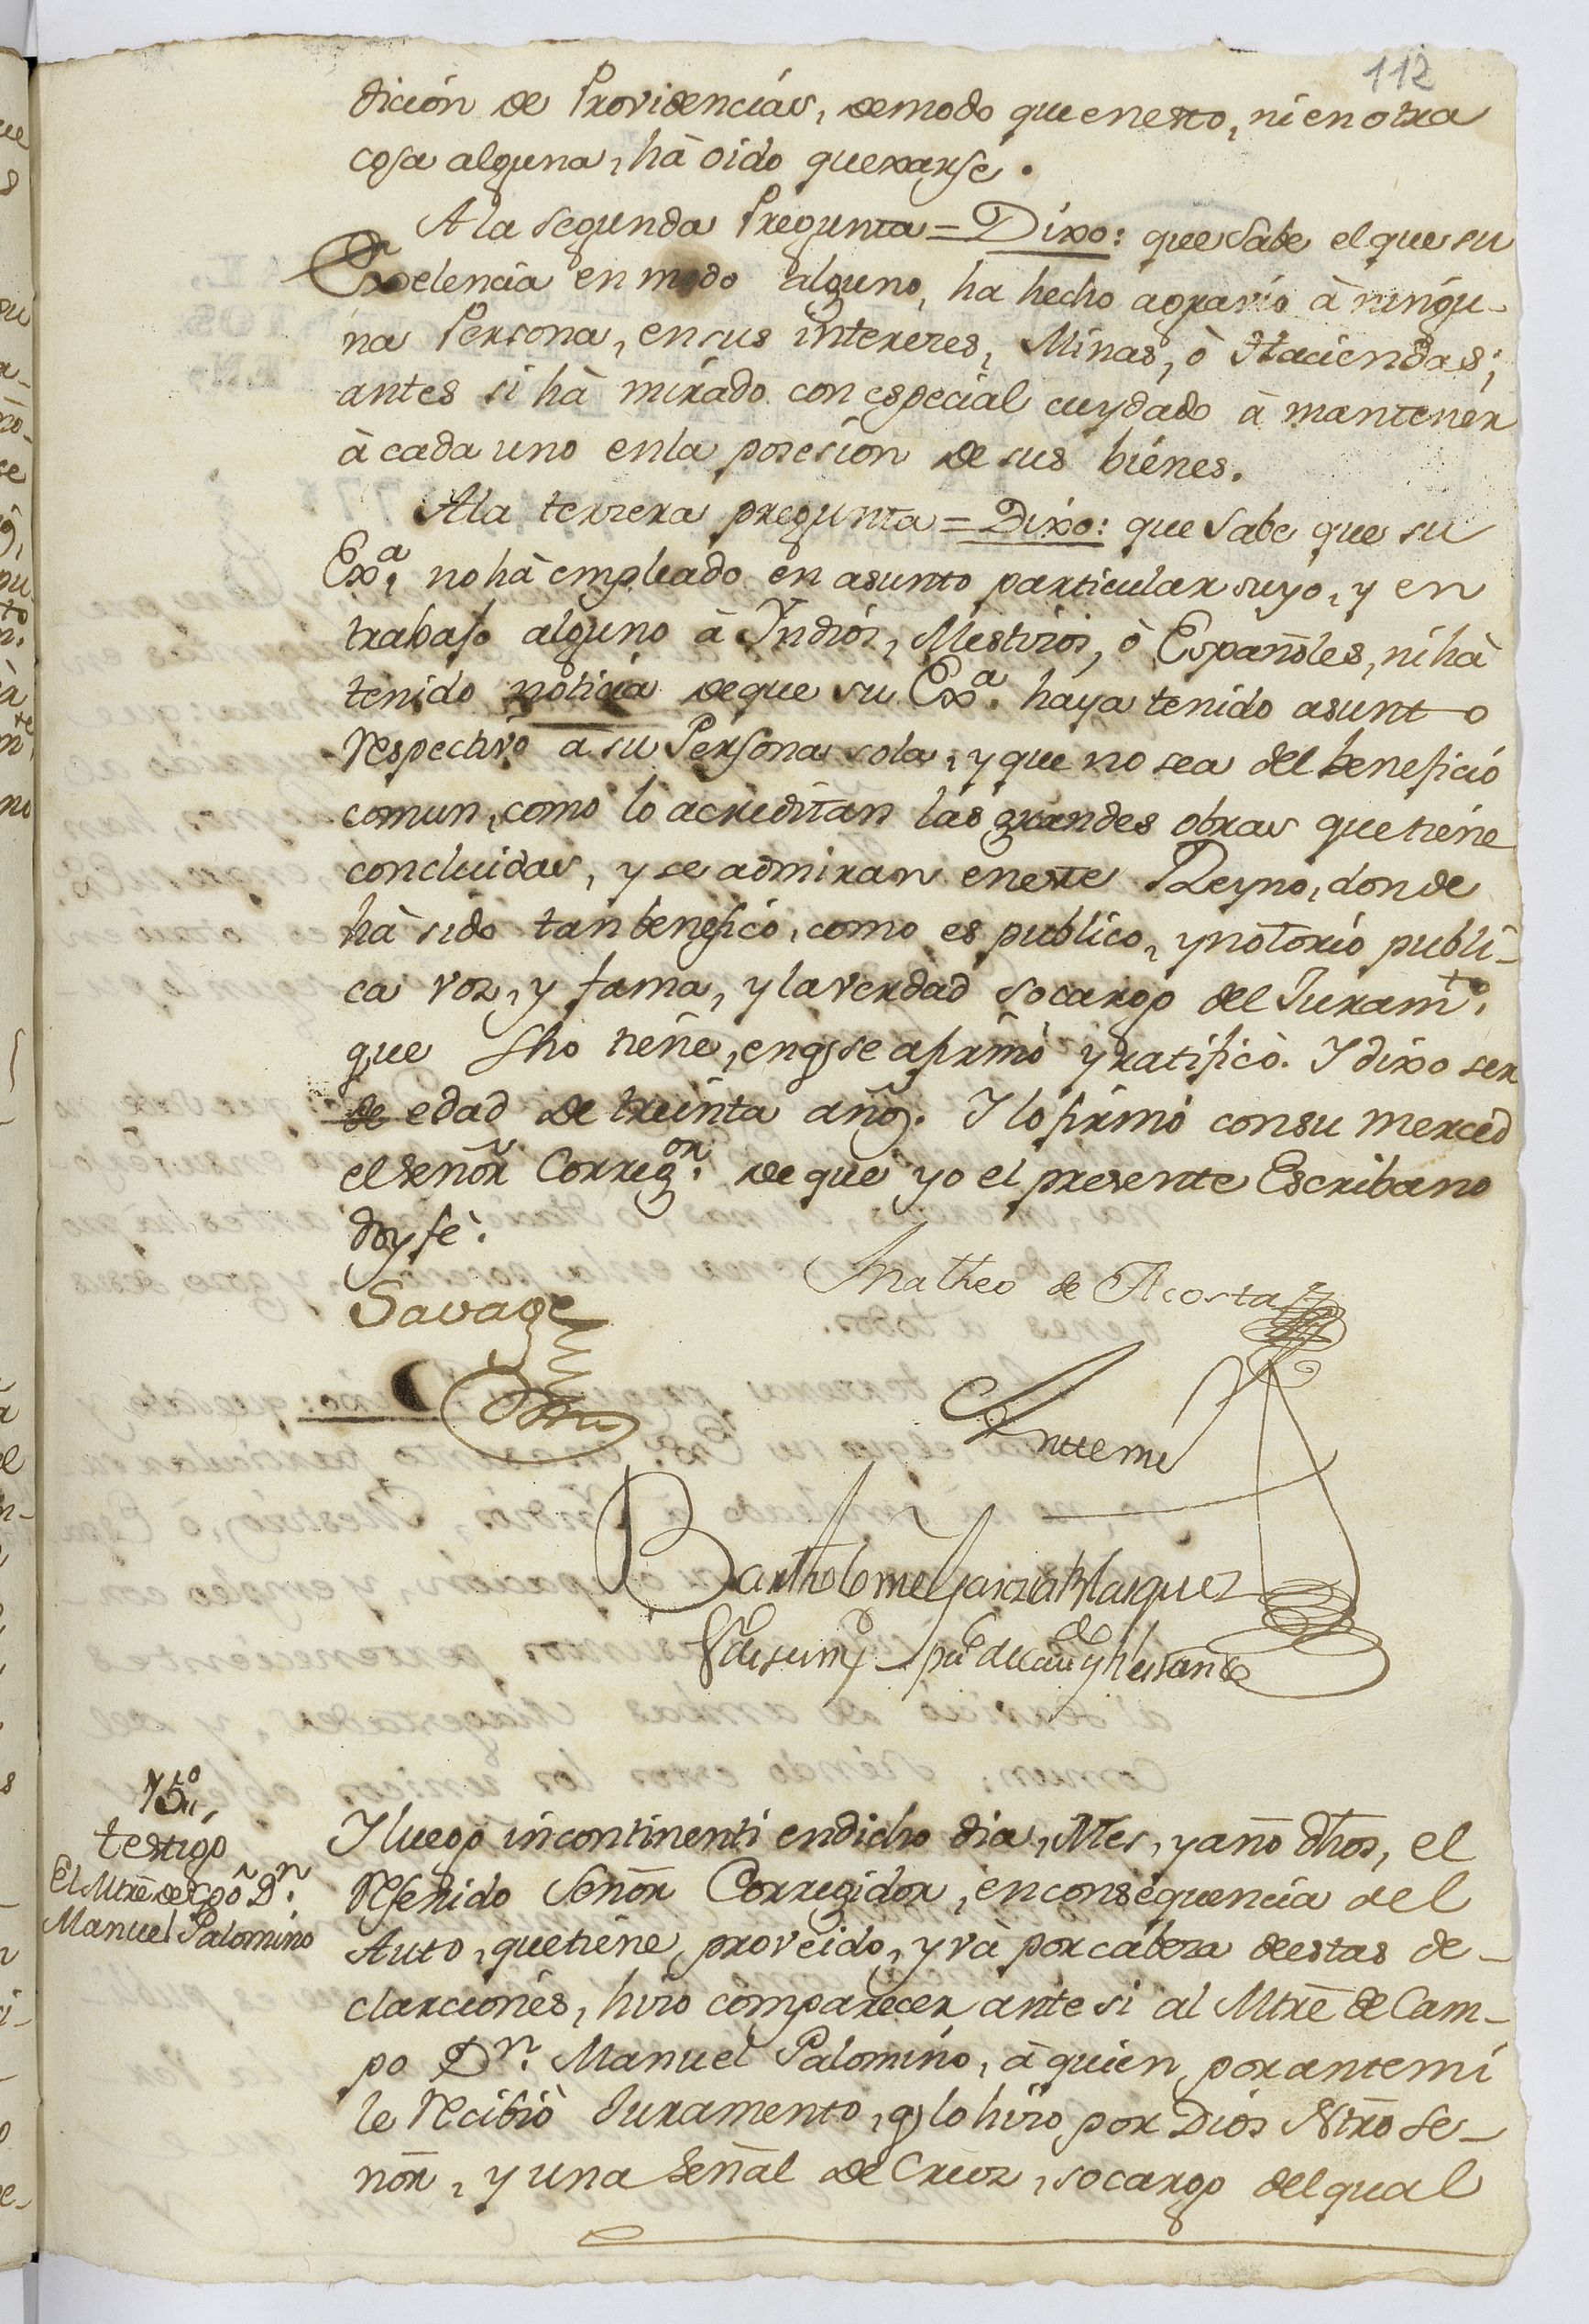 112
dicion de Providencias, demodo que enesto, ni en otra
cosa alguna, hà oido quexarse.
A la segunda Pregunta = Dixo: que Sabe el que su
Exelencia en modo alguno, ha hecho agravio à ningu-
na Persona, en sus intereses, Minas, ò Haciendas;
antes si hà mirado con especial cuydado à mantener
à cada uno enla posesion de sus bienes.
A la tercera pregunta = Dixo: que Sabe que su
Exa. no hà empleado en asunto particular suyo, y en
trabajo alguno à Yndios, Mestizos, ò Españoles, ni hà
tenido noticia de que su Exa. haya tenido asunto
respectivo a su Persona sola, y que no sea del beneficio
comun, como lo acreditan las grandes obras que tiene
concluidas, y se admiran eneste Reyno, donde
hà sido tan benefico, como es publico, y notorio publi-
ca voz, y fama, y la verdad socargo del Juramto.
que fho tiene, en q se afirmò y ratificò. Y dixo ser
de edad de treinta años. Y lo firmò con su merced
el Señor Corregor. de que yo el presente Escribano
doy fè.
Savage
Matheo de Acosta
Antte mi
Bartholome Garzia Blasquez
15º
testigo
El Mtrẽ de Cpõ Dn.
Manuel Palomino
Y luego incontinenti en dicho dia, Mes, y año dhos, el
Referido Señor Corregidor, en consequencia del
Auto, que tiene proveido, y và por cabeza de estas de-
clarciones, hizo comparecer ante si al Mtrẽ de Cam-
po Dn. Manuel Palomino, à quien por ante mi
le Recibiò Juramento, q lo hizo por Dios Ntrõ Se-
ñor, y una Señal de Cruz, socargo del qual